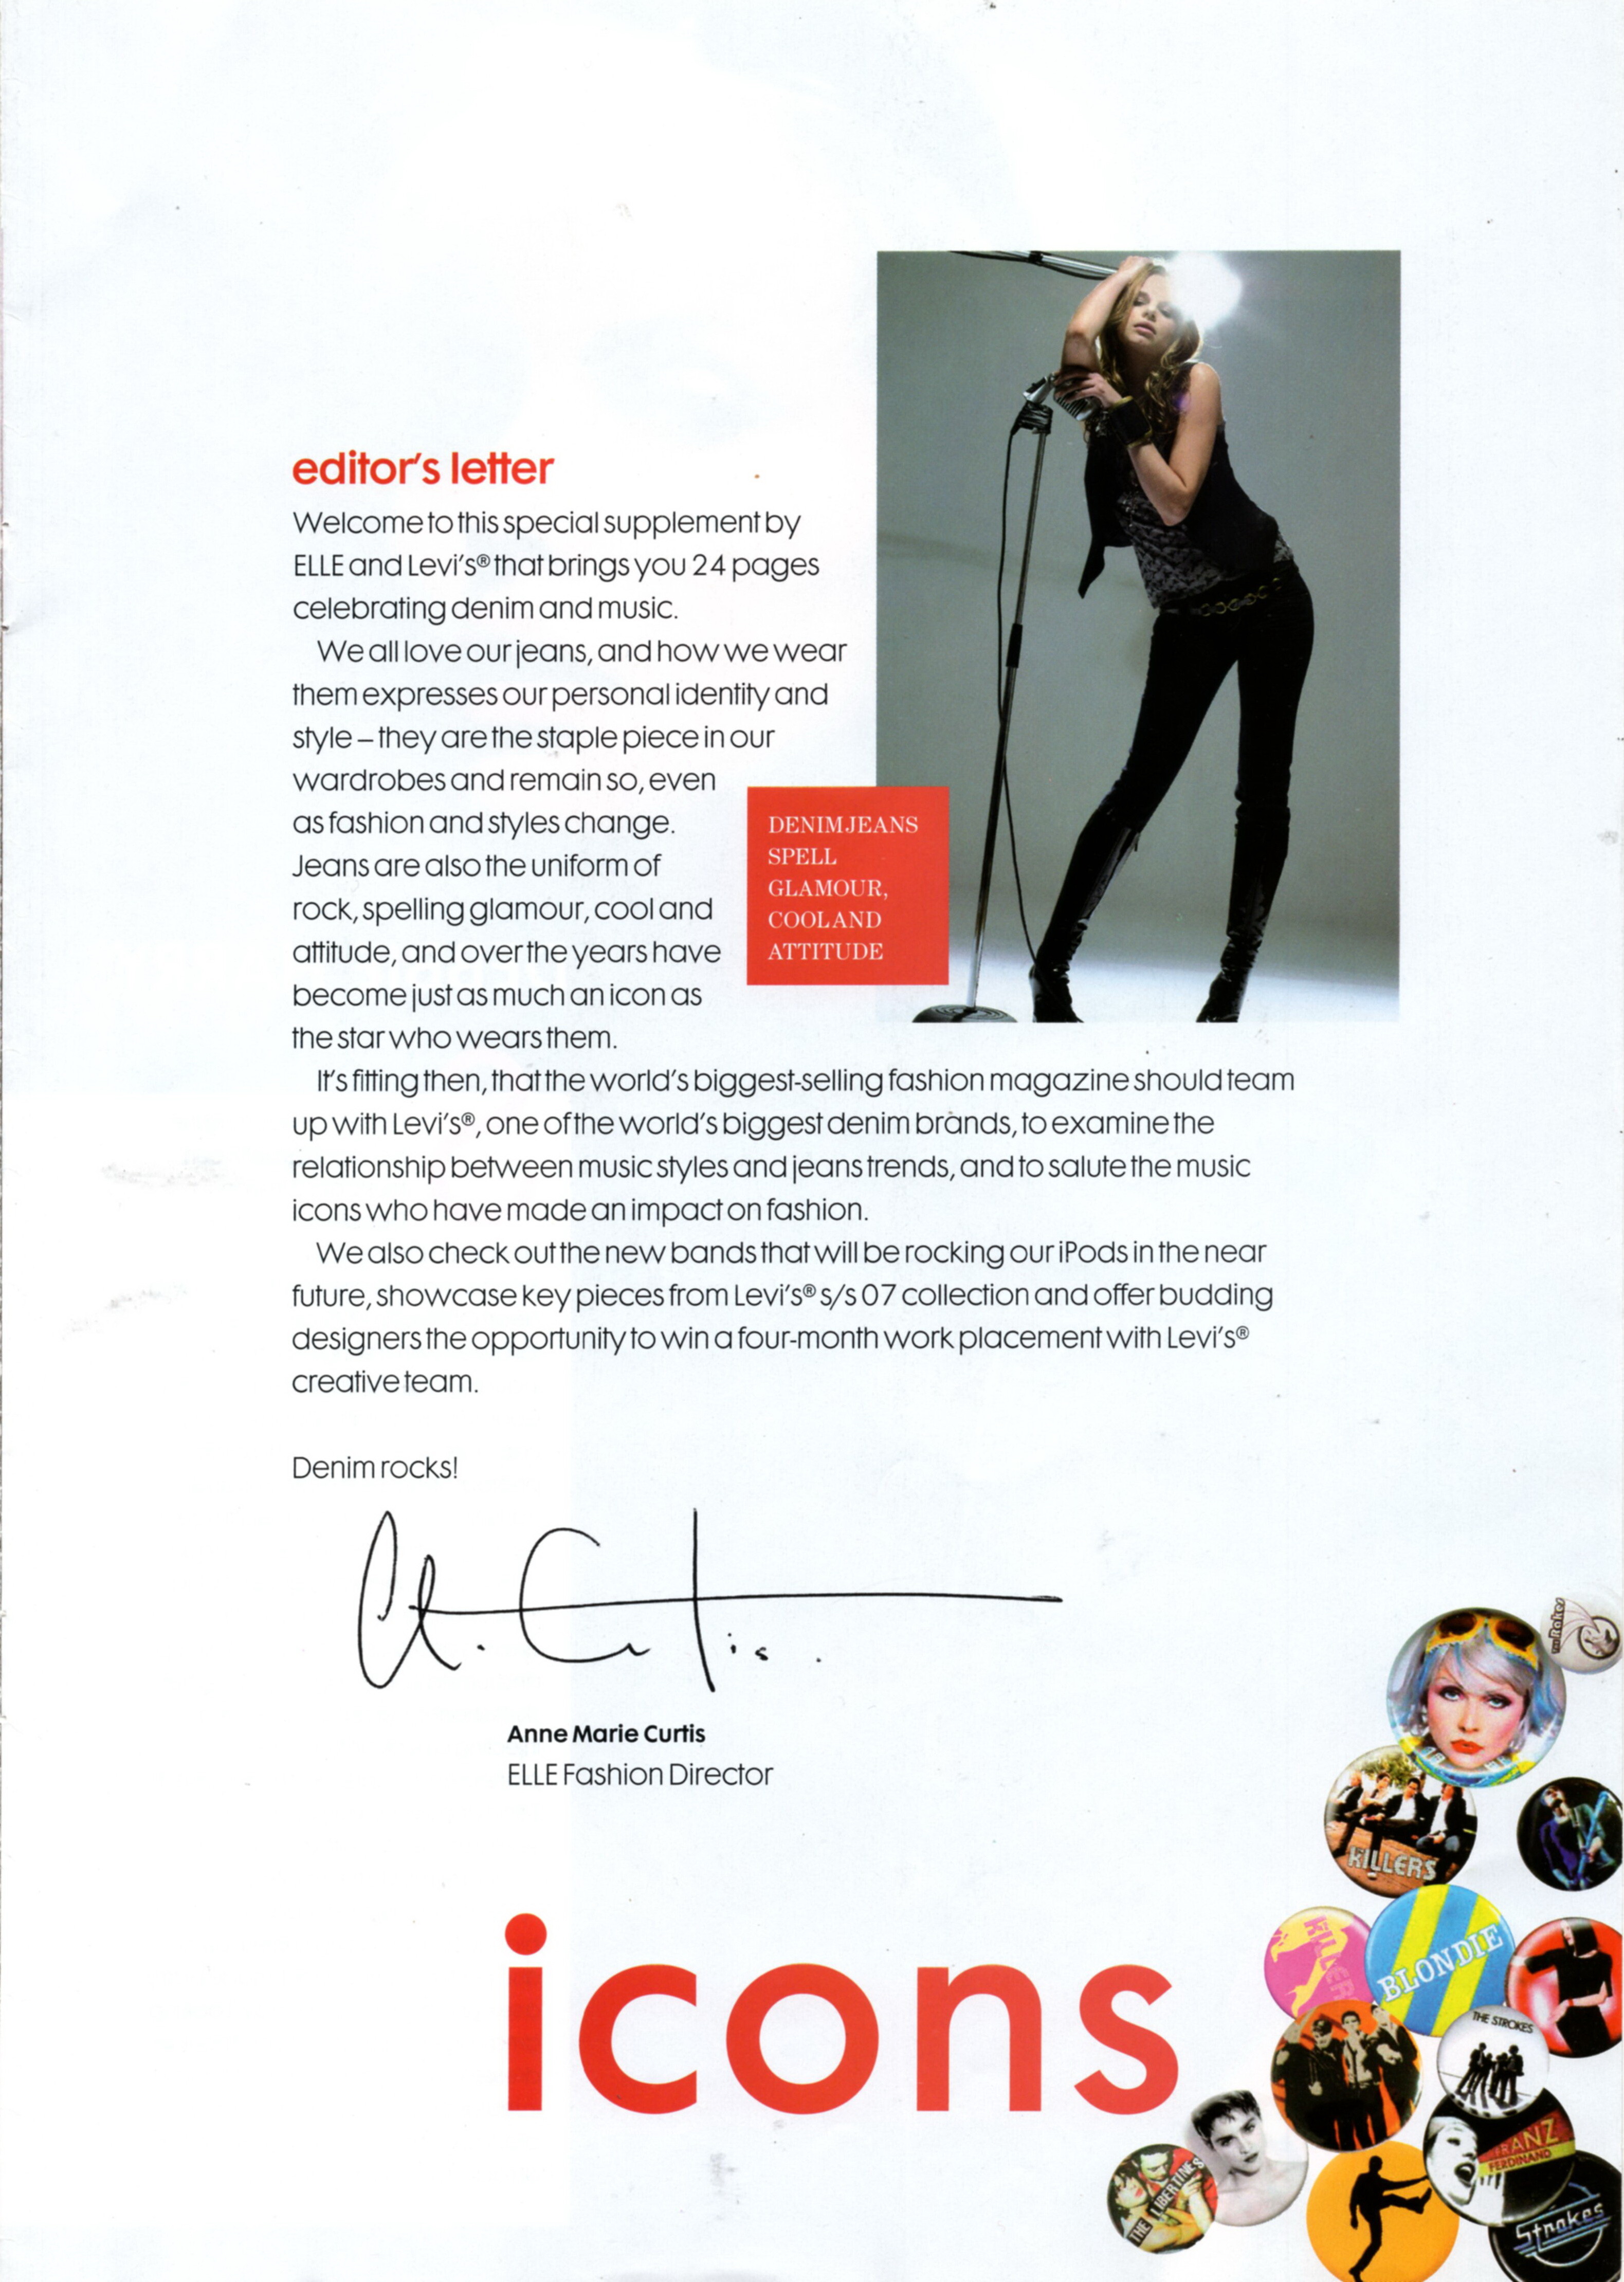 editor's letter
Welcome to this special supplement by
ELLE and Levi's® that brings you 24 pages
celebrating denim and music.
We all love our jeans, and how we wear
them expresses our personal identity and
style – they are the staple piece in our
wardrobes and remain so, even
as fashion and styles change.
Jeans are also the uniform of
rock, spelling glamour, cool and
attitude, and over the years have
become just as much an icon as
the star who wears them.
DENIM JEANS
SPELL
GLAMOUR,
COOL AND
ATTITUDE
It's fitting then, that the world's biggest-selling fashion magazine should team
up with Levi's®, one of the world's biggest denim brands, to examine the
relationship between music styles and jeans trends, and to salute the music
icons who have made an impact on fashion.
We also check out the new bands that will be rocking our iPods in the near
future, showcase key pieces from Levi's® s/s 07 collection and offer budding
designers the opportunity to win a four-month work placement with Levi's®
creative team.
Denim rocks!
A. Curtis.
Anne Marie Curtis
ELLE Fashion Director
icons
THE Rakes
KILLERS
KILLER
BLONDIE
THE STROKES
FRANZ
FERDINAND
THE LIBERTINES
Strokes